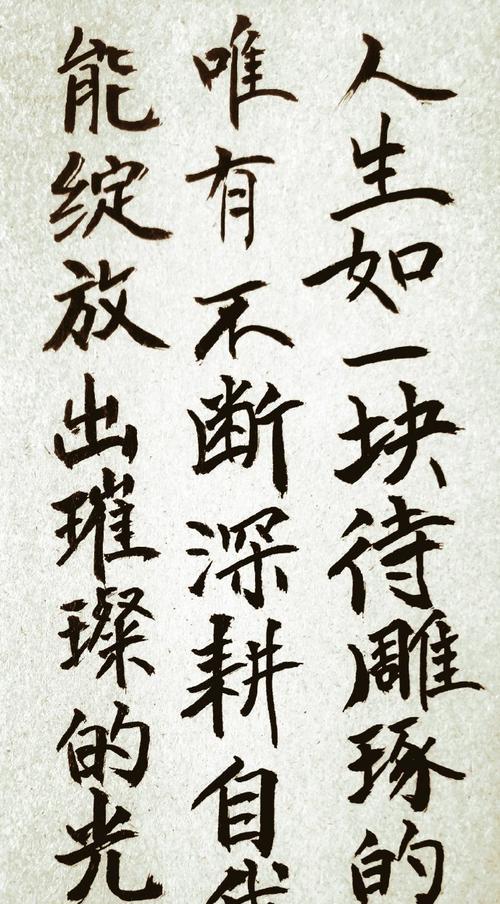 人生如一块待雕琢的
唯有不断深耕自
能绽放出璀璨的光